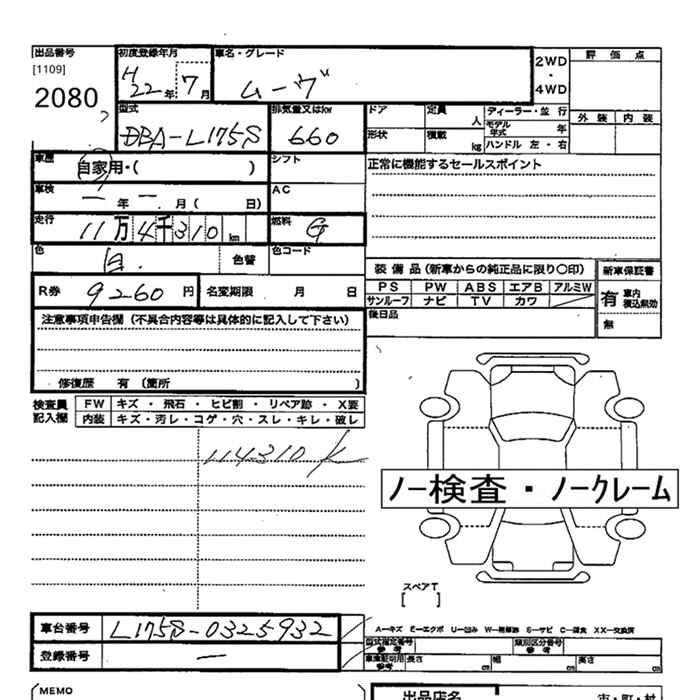 出品番号 初度登録年月 車名・グレード 2WD・4WD 評価点
[1109]
2080
H22年7月 ムーヴ
型式 排気量又はkw ドア 定員 人 ディーラー・並行
DBA-L175S 660 形状 積載 kg モデル年式 年 外装 内装
ハンドル 左・右
車歴 自家用・( ) シフト 正常に機能するセールスポイント
車検 ー年ー月( 日) AC
走行 11万4千310km 燃料 G
色 白 色替 色コード
装備品(新車からの純正品に限り○印) 新車保証書
R券 9260円 名変期限 月 日 PS PW ABS エアB アルミW 有 車内積込無効
サンルーフ ナビ TV カワ
後日品 無
注意事項申告欄(不具合内容等は具体的に記入して下さい)
修復歴 有(箇所 )
検査員記入欄 FW キズ・飛石・ヒビ割・リペア跡・X要
内装 キズ・汚レ・コゲ・穴・スレ・キレ・破レ
114310K
ノー検査・ノークレーム
スペアT
[ ]
車台番号 L175S-0325932 A-キズ E-エクボ U-凹み S-サビ C-腐食 XX-交換済
型式指定番号 参考 類別区分番号 参考
登録番号 ー 参考 長さ cm 幅 cm 高さ cm
MEMO 出品店名 市・町・村